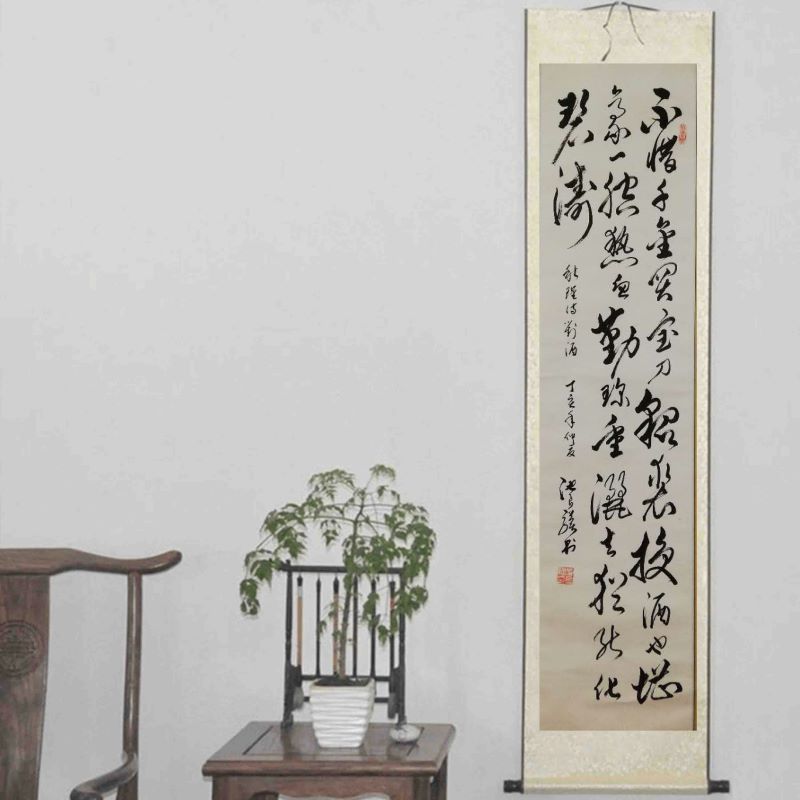 不惜千金买宝刀貂裘换酒也堪
豪一腔热血勤珍重洒去犹能化
碧涛
秋瑾诗对酒 丁亥年仲夏